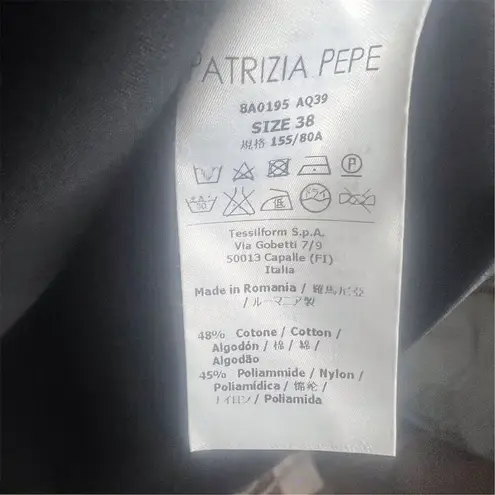 PATRIZIA PEPE
8A0195 AQ39
SIZE 38
規格 155/80A
P
30
低
ドライ
Tessilform S.p.A.
Via Gobetti 7/9
50013 Capalle (FI)
Italia
Made in Romania / 羅馬尼亞
/ ルーマニア製
48% Cotone / Cotton /
Algodón / 棉 / 綿 /
Algodão
45% Poliammide / Nylon /
Poliamídica / 锦纶 /
ナイロン / Poliamida